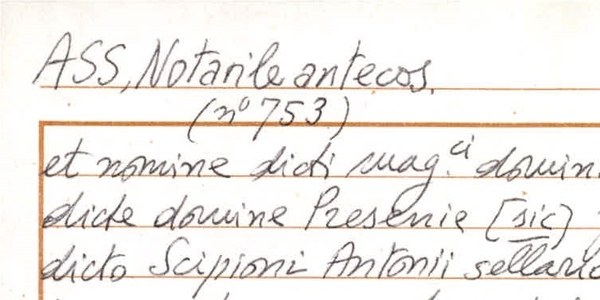 ASS, Notarile antecos.
(nº 753)
et nomine dicti mag.ci domin
dicte domine Presenie [sic]
dicto Scipioni Antonii sellario